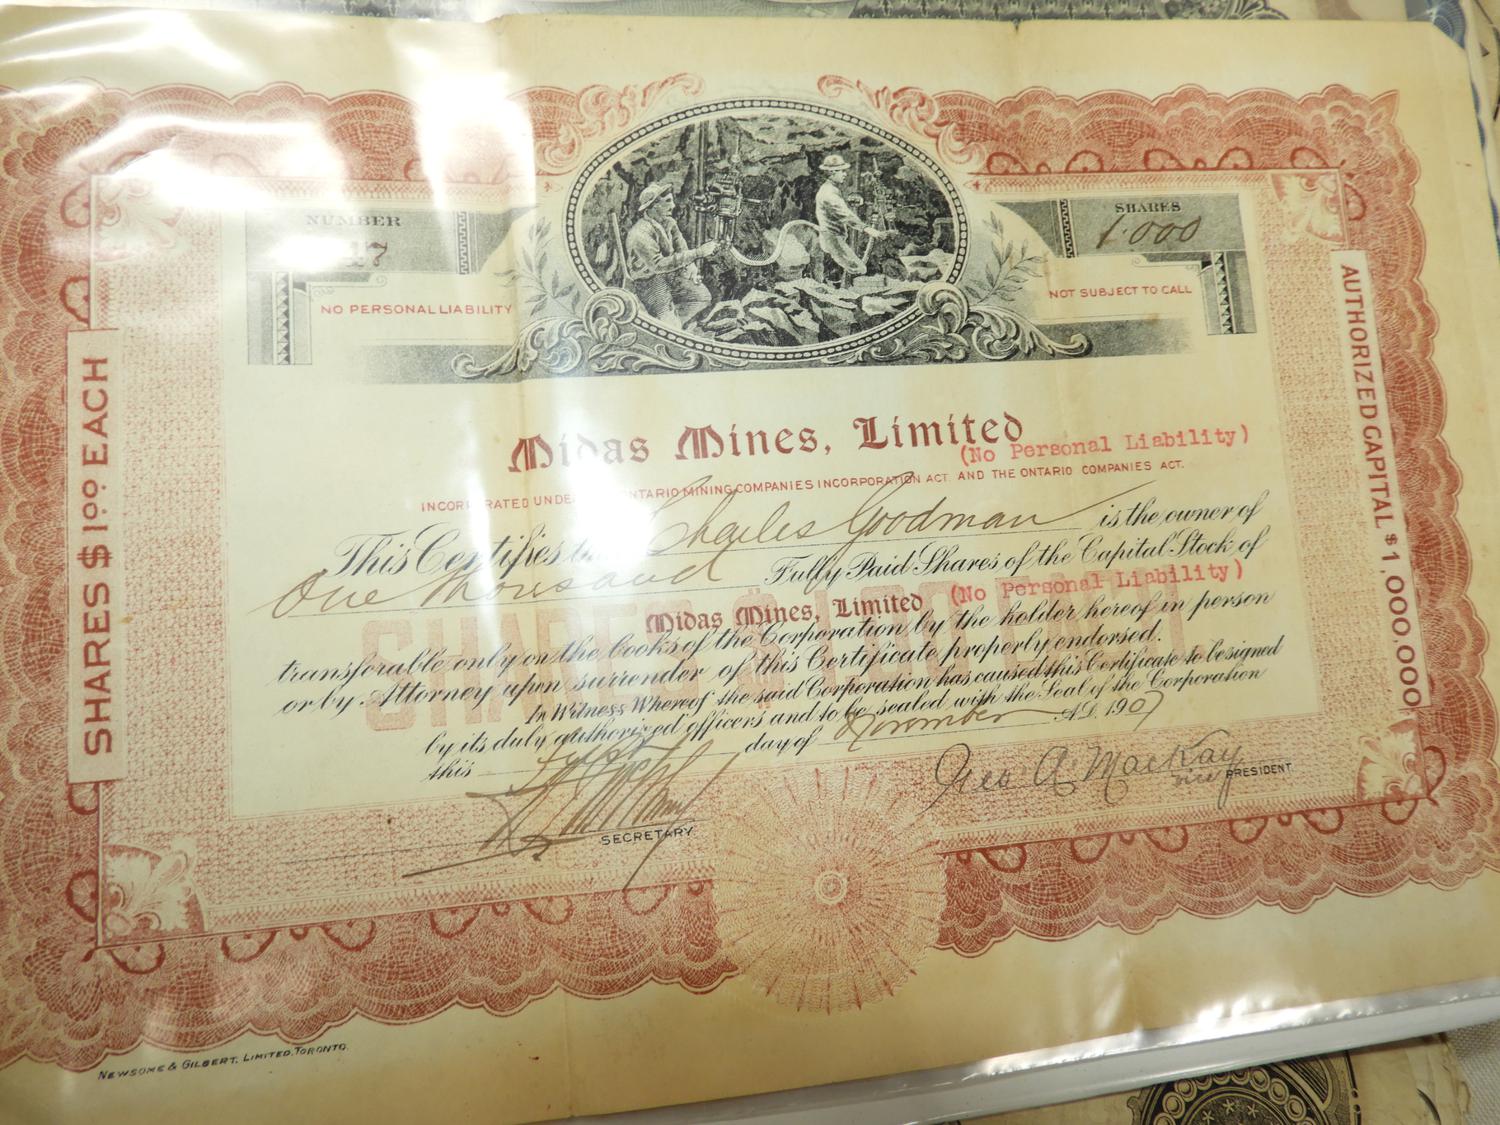 NUMBER
17
SHARES
1000
NO PERSONAL LIABILITY
NOT SUBJECT TO CALL
SHARES $1.00 EACH
AUTHORIZED CAPITAL $1,000.000
Midas Mines, Limited
(No Personal Liability)
INCORPORATED UNDER ONTARIO MINING COMPANIES INCORPORATION ACT. AND THE ONTARIO COMPANIES ACT.
This Certifies Charles Goodman is the owner of
One thousand Fully Paid Shares of the Capital Stock of
Midas Mines, Limited (No Personal Liability)
transferable only on the books of the Corporation by the holder hereof in person
or by Attorney upon surrender of this Certificate properly endorsed.
In Witness Whereof the said Corporation has caused this Certificate to be signed
by its duly authorized officers and to be sealed with the Seal of the Corporation
this first day of November A.D. 1907
Geo A. MacKay
Vice PRESIDENT
SECRETARY
NEWSOME & GILBERT, LIMITED, TORONTO.